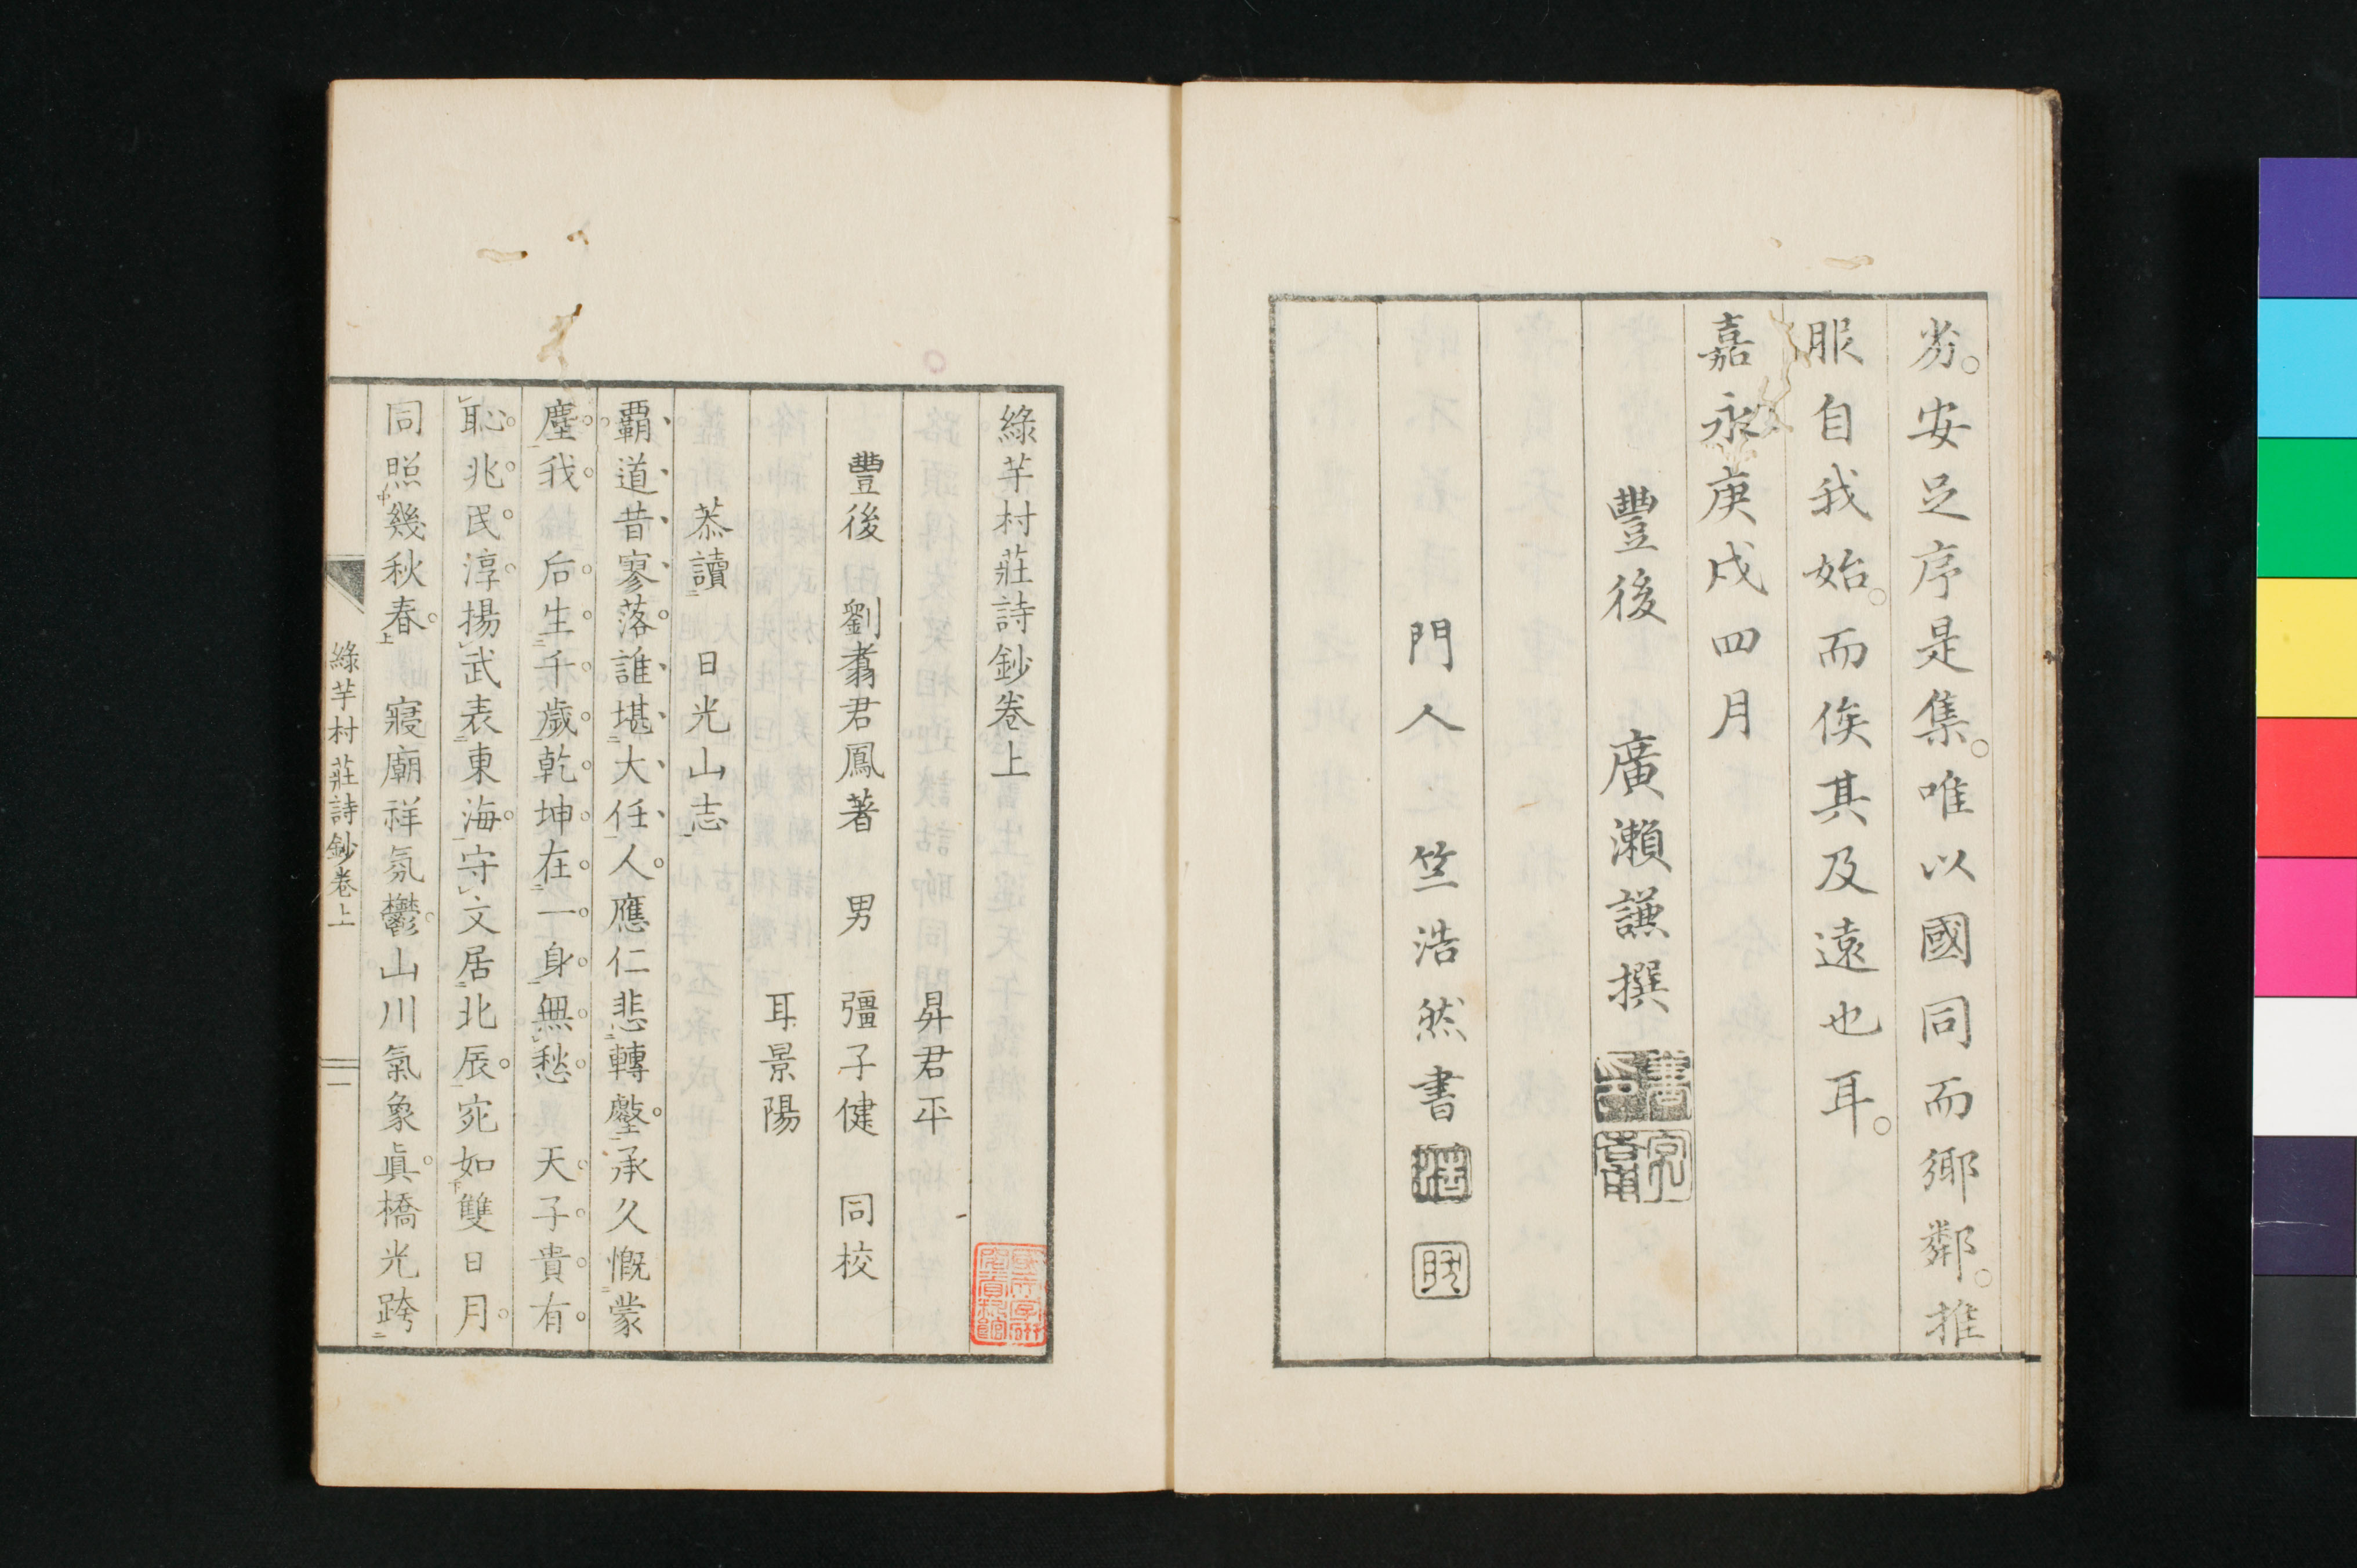 劣。安足序是集。唯以國同而鄉鄰。推
服自我始。而俟其及遠也耳。
嘉永庚戌四月
豐後　廣瀨謙撰
門人　竺浩然書
綠芋村莊詩鈔卷上
昇君平
豐後　劉翥君鳳著　男　彊子健　同校
耳景陽
恭讀二　日光山志一
覇道昔寥落。誰堪二大任一人。應仁悲二轉壑一。承久慨二蒙
塵一。我　后生二千歲一。乾坤在二一身一。無愁　天子貴。有
恥兆民淳。揚武表二東海一。守文居二北辰一。宛如下雙日月。
同照中幾秋春上。　寢廟祥氛鬱。山川氣象眞。橋光跨二
綠芋村莊詩鈔卷上
一